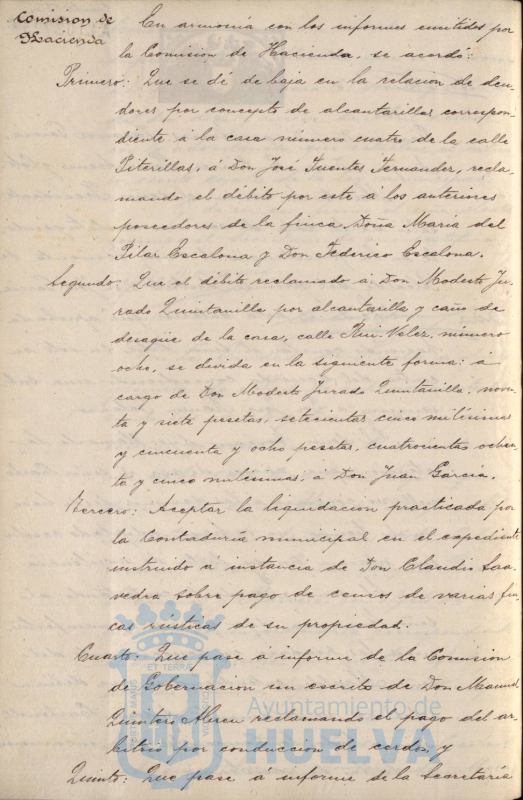 Comision de
Hacienda
En armonía con los informes emitidos por
la Comision de Hacienda, se acordó:
Primero: Que se dé de baja en la relacion de deu-
dores por concepto de alcantarillas correspon-
diente á la casa número cuatro de la calle
Piterillas, á Don José Fuentes Fernandez, recla-
mando el débito por este á los anteriores
poseedores de la finca Doña Maria del
Pilar Escalona y Don Federico Escalona.
Segundo: Que el débito reclamado á Don Modesto Ju-
rado Quintanilla por alcantarilla y caño de
desagüe de la casa, calle Rui-Velez, número
ocho, se divida en la siguiente forma: á
cargo de Don Modesto Jurado Quintanilla, noven-
ta y siete pesetas, setecientas cinco milésimas
y cincuenta y ocho pesetas, cuatrocientas ochen-
ta y cinco milésimas, á Don Juan García.
Tercero: Aceptar la liquidacion practicada por
la Contaduría municipal en el expediente
instruido á instancia de Don Claudio Saa-
vedra sobre pago de censos de varias fin-
cas rústicas de su propiedad.
Cuarto: Que pase á informe de la Comision
de Gobernacion un escrito de Don Manuel
Quintero Abreu reclamando el pago del ar-
bitrio por conduccion de cerdos, y
Quinto: Que pase á informe de la Secretaría
ET TERRA
Ayuntamiento de
HUELVA